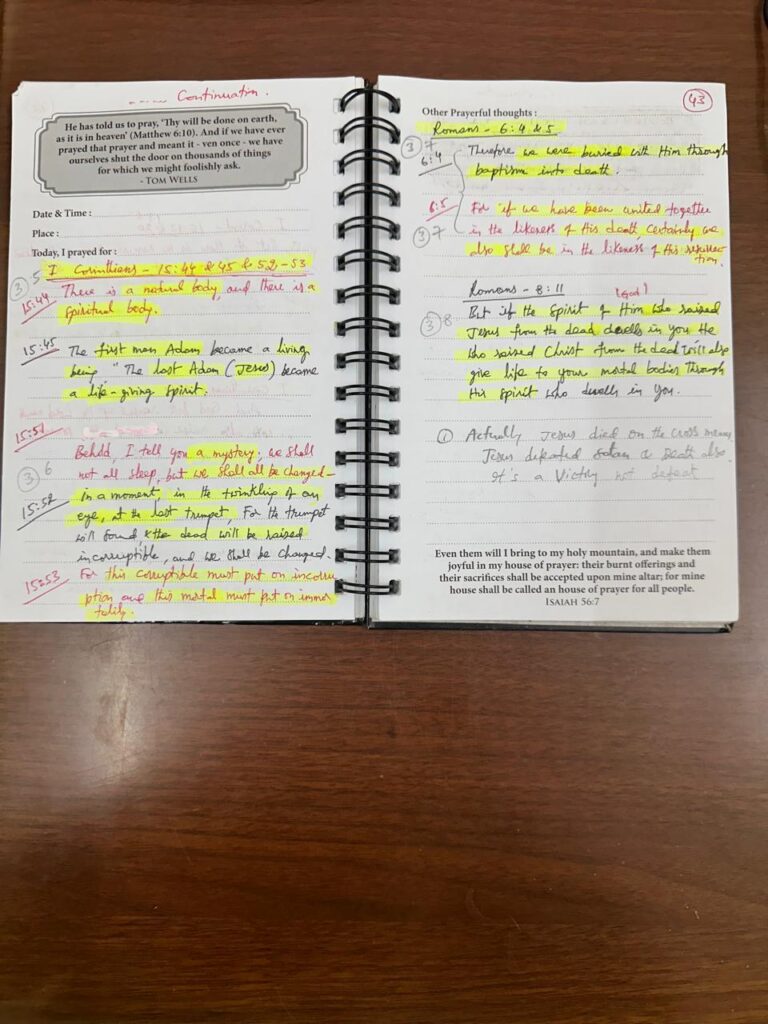 Continuation.
He has told us to pray, 'Thy will be done on earth,
as it is in heaven' (Matthew 6:10). And if we have ever
prayed that prayer and meant it - ven once - we have
ourselves shut the door on thousands of things
for which we might foolishly ask.
- TOM WELLS
Date & Time :
Place :
Today, I prayed for :
I Corinthians - 15:44 & 45 & 52-53
3 5
15:44 There is a natural body, and there is a
spiritual body.
15:45 The first man Adam became a living
being " The last Adam (Jesus) became
a life-giving spirit.
15:51
Behold, I tell you a mystery; we shall
3 6 not all sleep, but we shall all be changed-
15:52 in a moment, in the twinkling of an
eye, at the last trumpet, For the trumpet
will sound, & the dead will be raised
incorruptible, and we shall be changed.
15:53 For this corruptible must put on incorru
ption and this mortal must put on immor
tality.
43
Other Prayerful thoughts :
Romans - 6:4 & 5
3 7
6:4 Therefore we were buried with Him through
baptism into death.
6:5 For if we have been united together
3 7 in the likeness of His death certainly we
also shall be in the likeness of His resurrec
tion.
Romans - 8:11 (God)
3 8 But if the Spirit of Him who raised
Jesus from the dead dwells in you He
who raised Christ from the dead will also
give life to your mortal bodies through
His spirit who dwells in You.
1 Actually Jesus died on the cross means
Jesus defeated Satan & Death also.
It's a Victry not defeat
Even them will I bring to my holy mountain, and make them
joyful in my house of prayer: their burnt offerings and
their sacrifices shall be accepted upon mine altar; for mine
house shall be called an house of prayer for all people.
ISAIAH 56:7